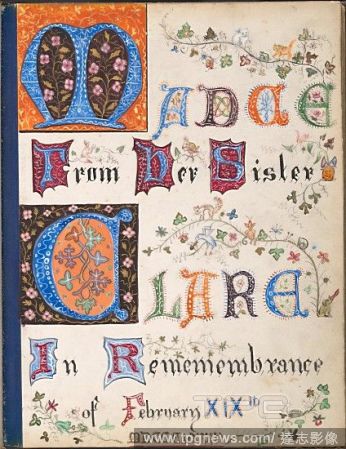 MADGE
From Her Sister
CLARE
In Rememembrance
of February XIXth
www.tpgnews.com / 達志影像